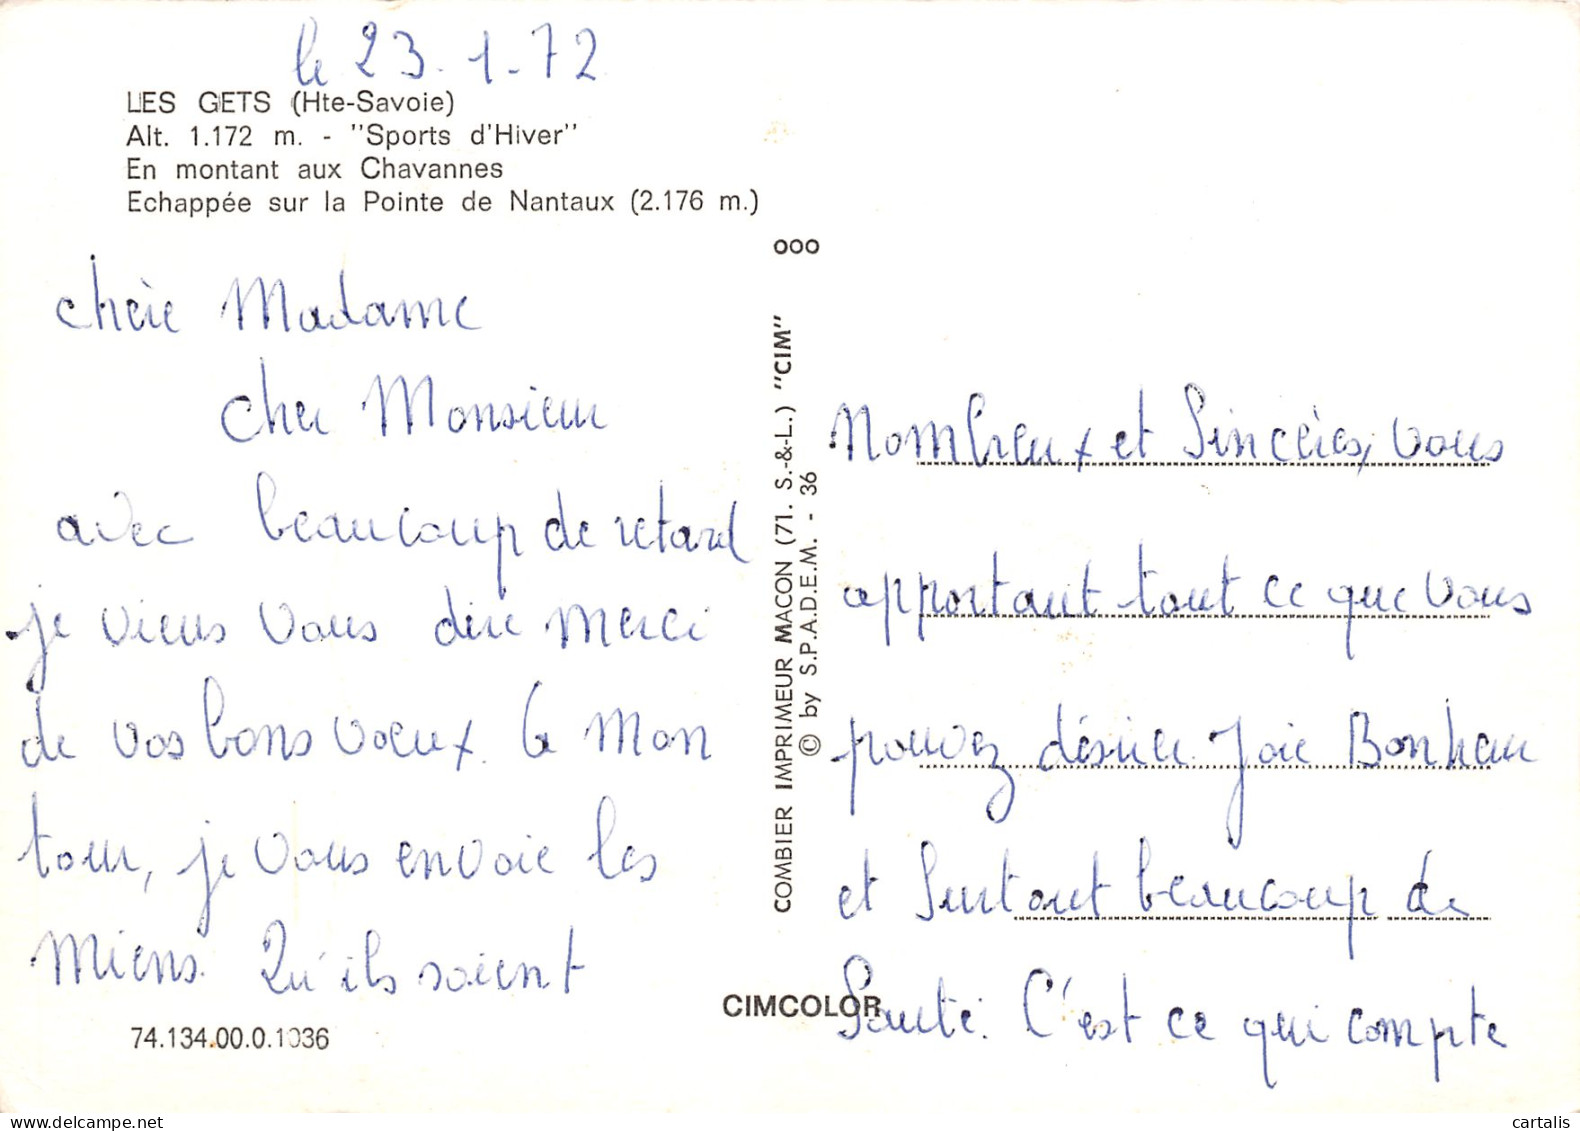 le 23.1-72
LES GETS (Hte-Savoie)
Alt. 1.172 m. - "Sports d'Hiver"
En montant aux Chavannes
Echappée sur la Pointe de Nantaux (2.176 m.)
chère Madame
cher Monsieur
avec beaucoup de retard
je viens vous dire merci
de vos bons voeux. à mon
tour, je vous envoie les
miens. Qu'ils soient
74.134.00.0.1036
ooo
COMBIER IMPRIMEUR MACON (71. S.-&-L.) "CIM"
© by S.P.A.D.E.M. - 36
CIMCOLOR
Nombreux et Sincères, vous
apportant tout ce que vous
pouvez désirer. Joie Bonheur
et Surtout beaucoup de
Santé. C'est ce qui compte
cartalis